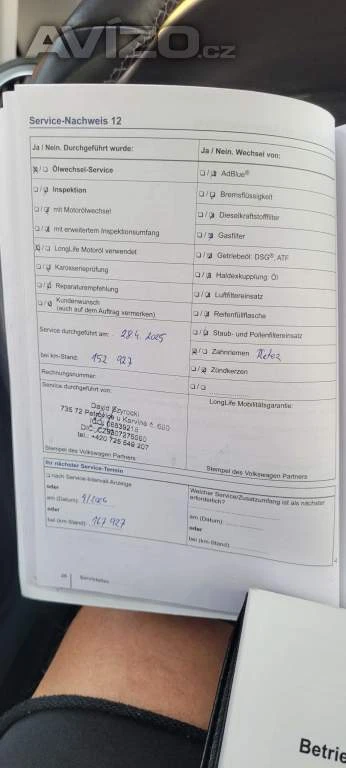 AVÍZO.cz
Service-Nachweis 12
Ja / Nein. Durchgeführt wurde:
Ölwechsel-Service
Inspektion
mit Motorölwechsel
mit erweitertem Inspektionsumfang
LongLife Motoröl verwendet
Karosserieprüfung
Reparaturempfehlung
Kundenwunsch
(auch auf dem Auftrag vermerken)
Service durchgeführt am: 28.4. 2025
bei km-Stand: 152 927
Rechnungsnummer:
Service durchgeführt von:
David Szyrocki
735 72 Petrovice u Karviné č. 600
tel.: +420 725 649 207
Stempel des Volkswagen Partners
Ja / Nein. Wechsel von:
AdBlue®
Bremsflüssigkeit
Dieselkraftstofffilter
Gasfilter
Getriebeöl: DSG®, ATF
Haldexkupplung: Öl
Luftfiltereinsatz
Reifenfüllflasche
Staub- und Pollenfiltereinsatz
Zahnriemen
Zündkerzen
LongLife Mobilitätsgarantie:
Stempel des Volkswagen Partners
Ihr nächster Service-Termin
nach Service-Intervall-Anzeige
oder
am (Datum)
oder
bei (km-Stand) 167 927
Welcher Service/Zusatzumfang ist als nächster
erforderlich?
am (Datum)
oder
bei (km-Stand)
Betrie